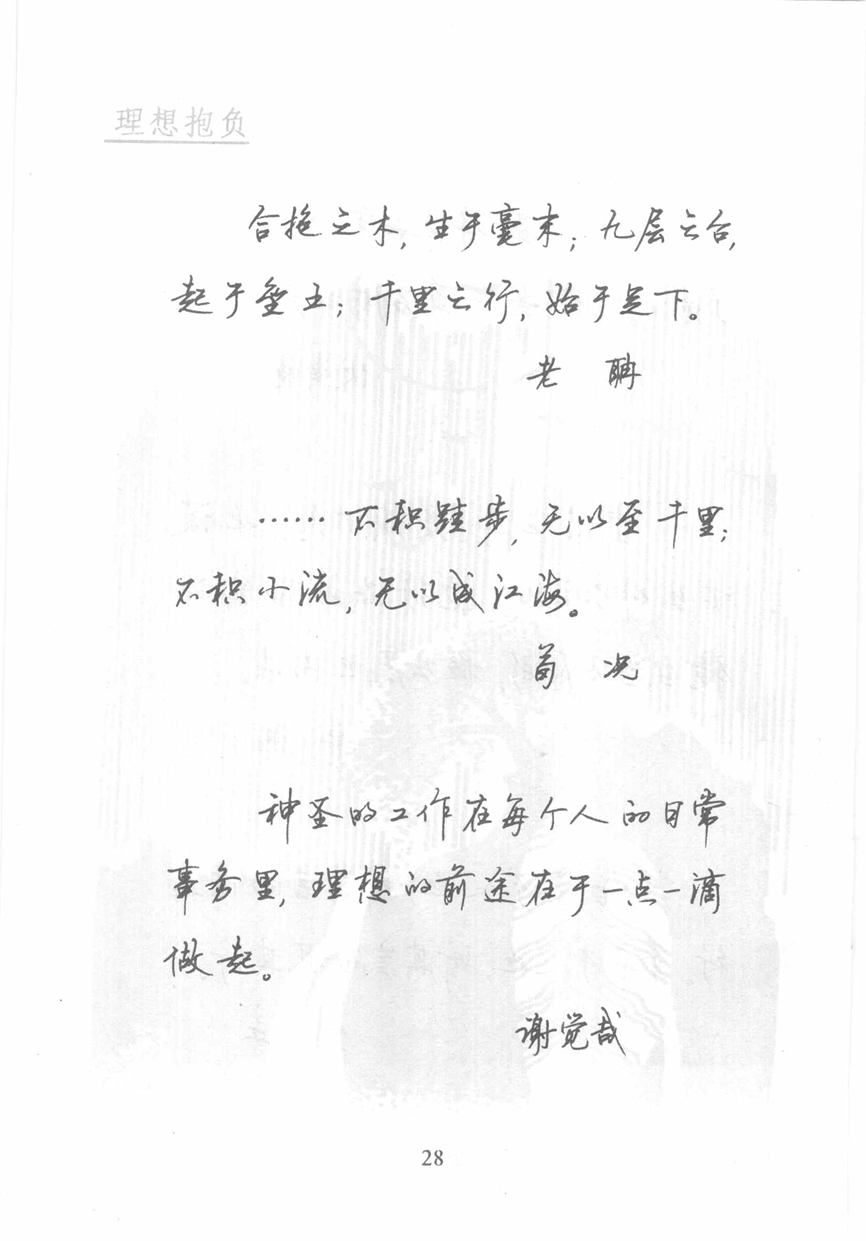 理想抱负
合抱之木,生于毫末;九层之台,
起于垒土;千里之行,始于足下。
老 聃
……不积跬步,无以至千里;
不积小流,无以成江海。
荀 况
神圣的工作在每个人的日常
事务里,理想的前途在于一点一滴
做起。
谢觉哉
28